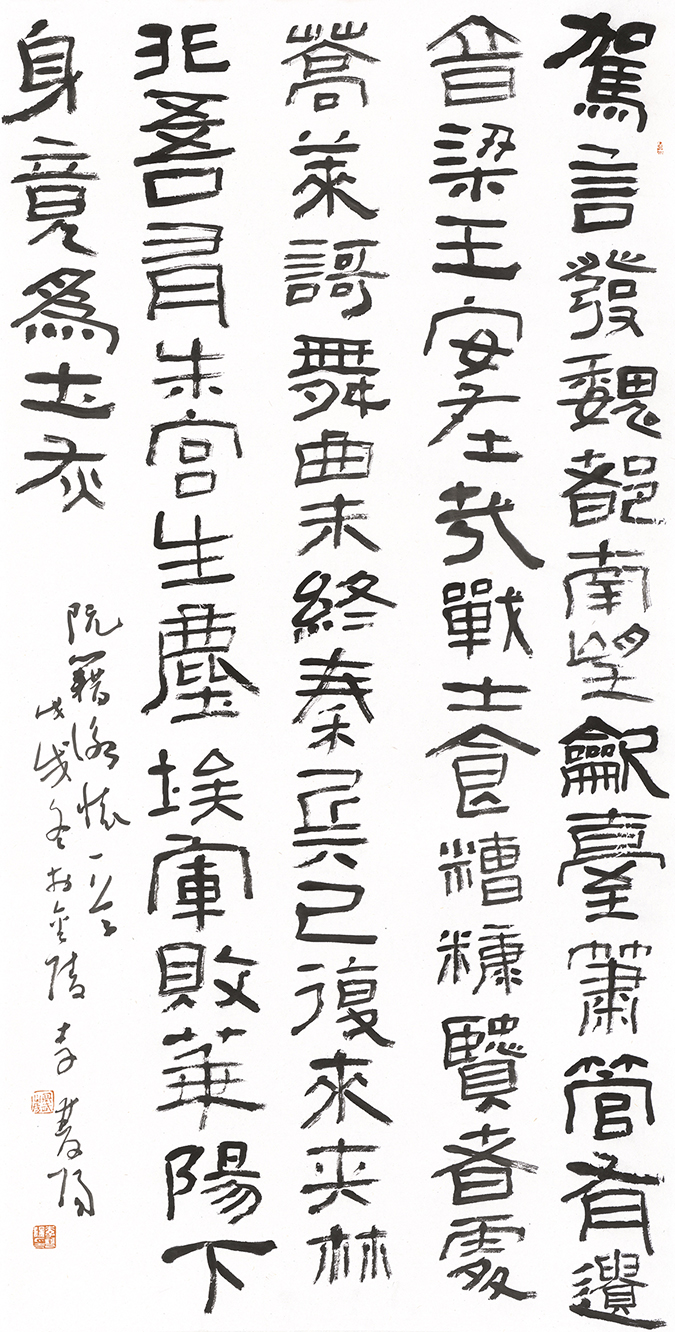 駕言發魏都南望龡臺簫管有遺
音梁王安在哉戰士食糟糠賢者處
蒿萊謌舞曲未終秦兵已復來夾林
非吾有朱宮生塵埃軍敗華陽下
身竟為土灰
阮籍詠懷一首
戊戌冬於金陵 李